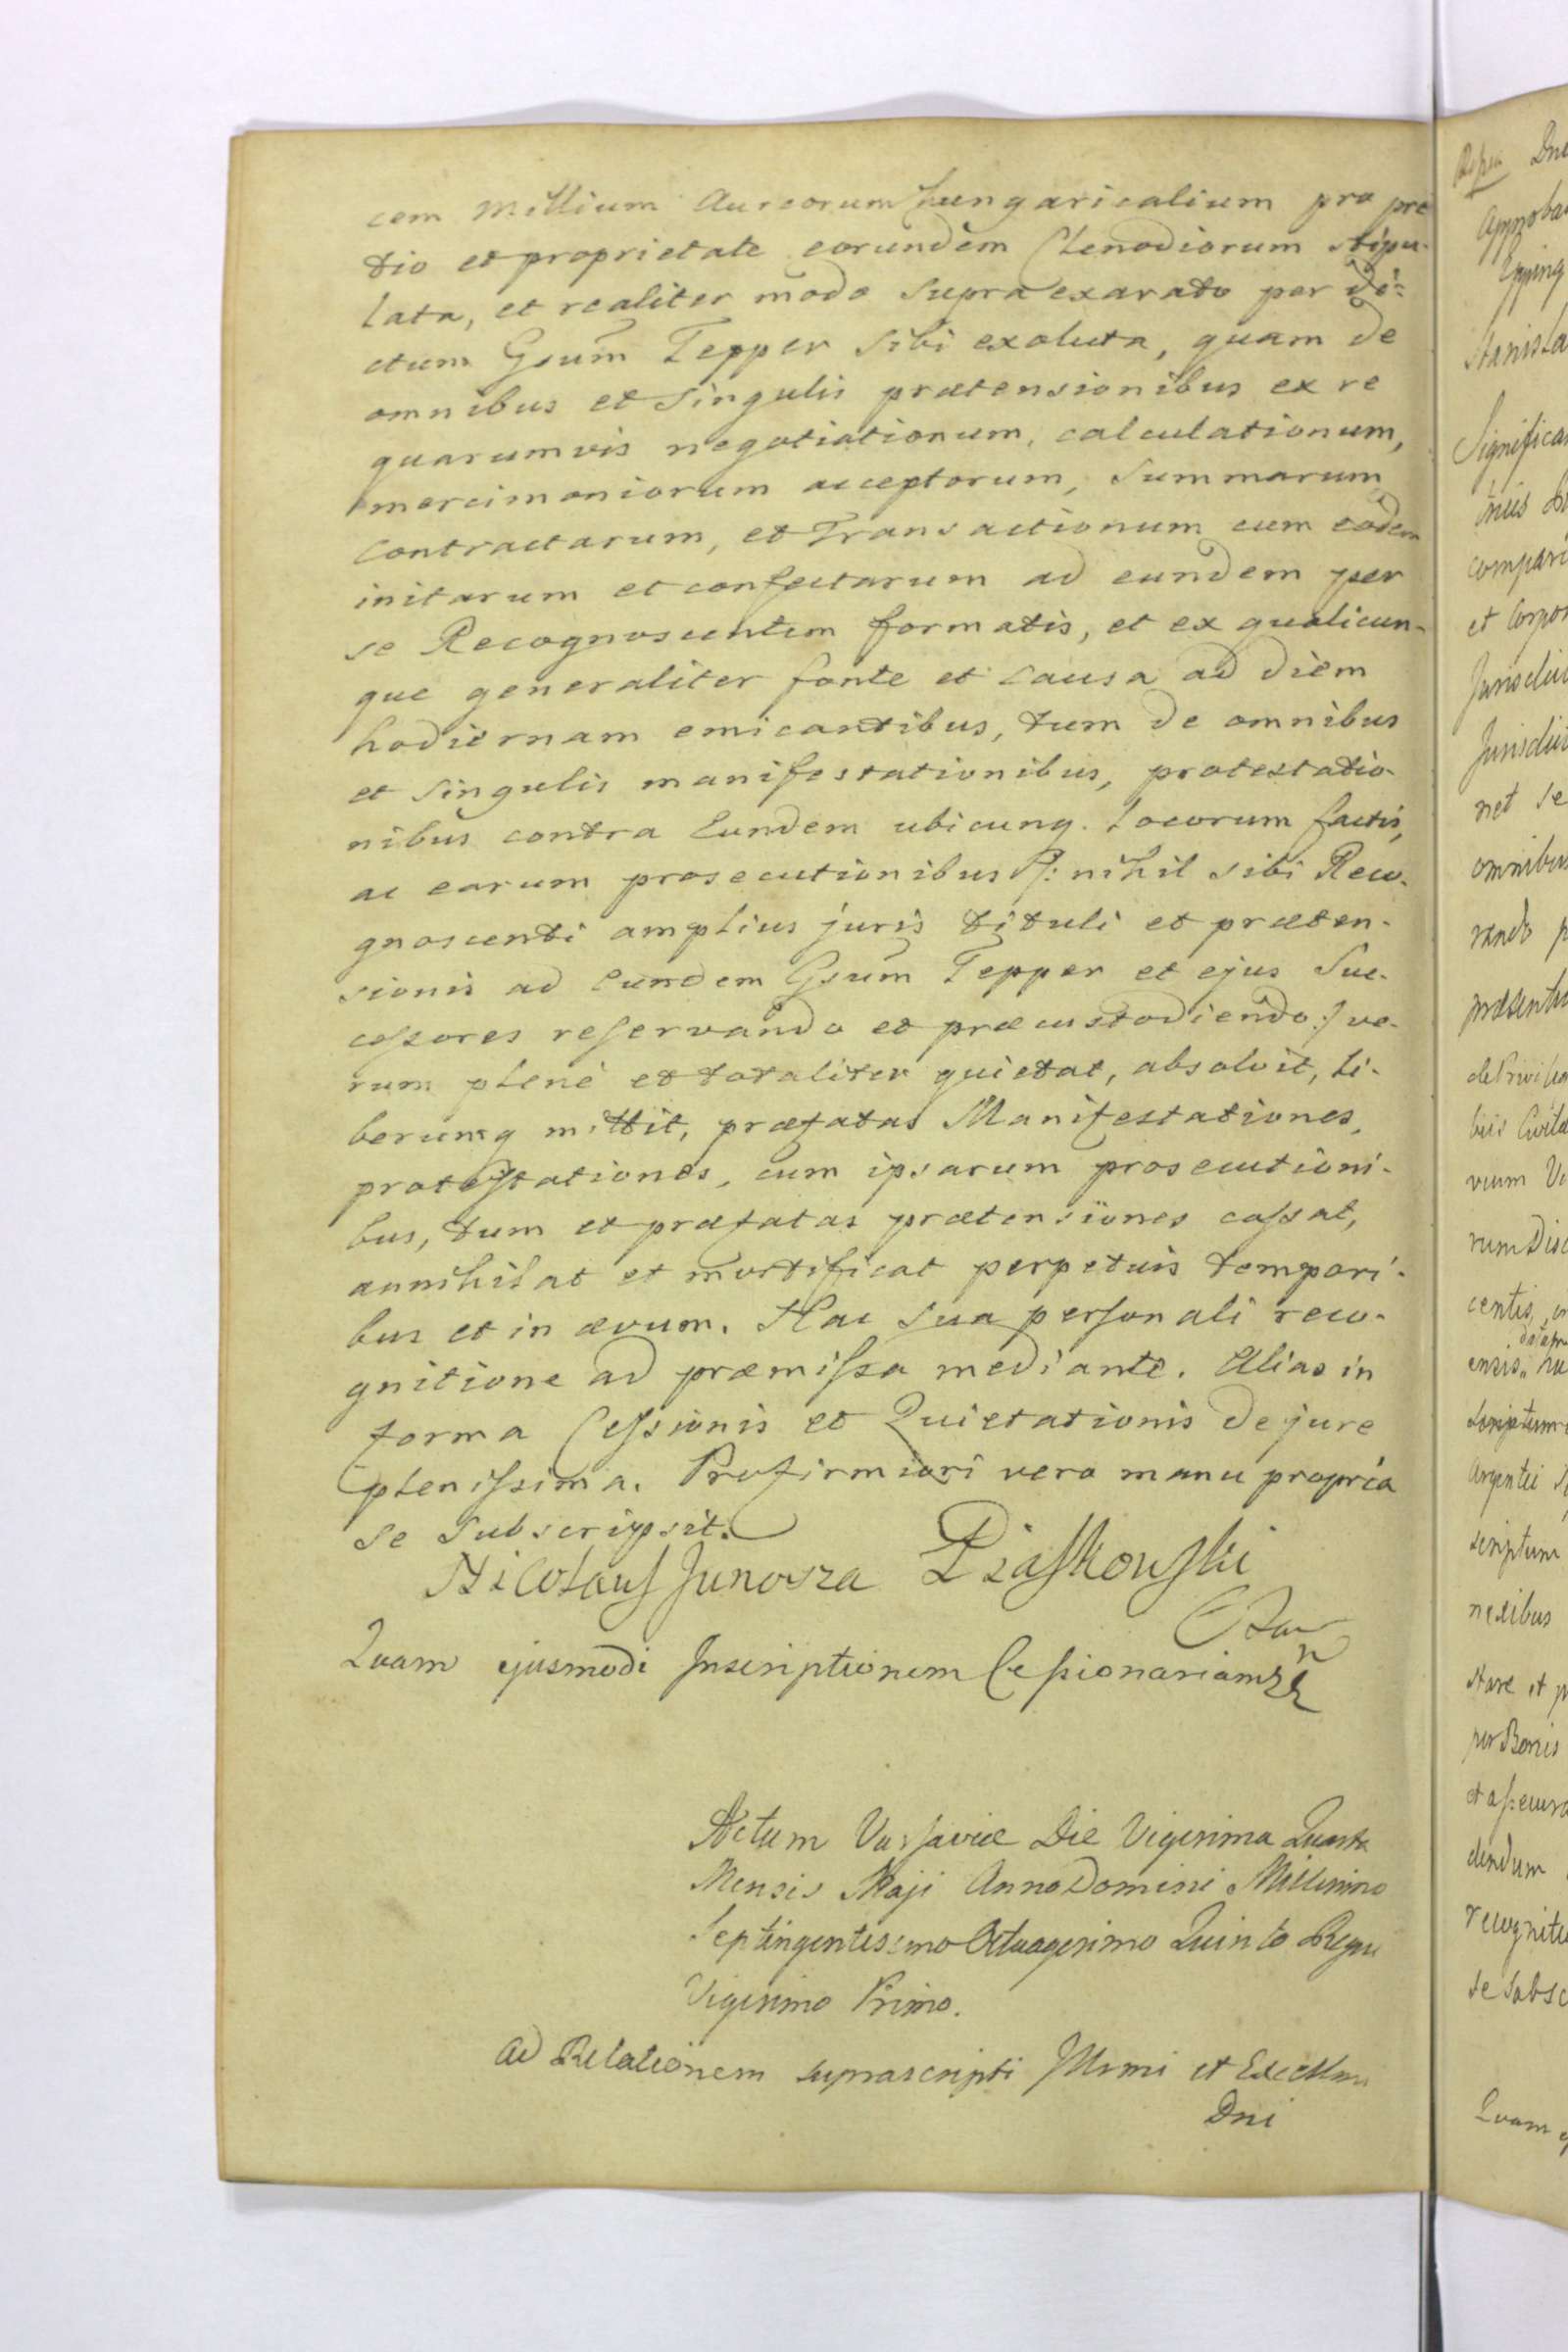 cem Millium Aureorum hungaricalium pro pre
tio et proprietate eorundem Clenodiorum stipu-
lata, et realiter modo supra exarato per di-
ctum Gsum Tepper sibi exoluta, quam de
omnibus et singulis prætensionibus ex re
quarumvis negotiationum, calculationum,
mercimoniorum acceptorum, Summarum
Contractarum, et Transactionum cum eodem
initarum et confectarum ad eundem per
se Recognoscentem formatis, et ex qualicun-
que generaliter fonte et causa ad diem
hodiernam emicantibus, tum de omnibus
et singulis manifestationibus, protestatio-
nibus contra Eundem ubicunq. Locorum factis,
ac earum prosecutionibus /: nihil sibi Reco-
gnoscenti amplius juris tituli et præten-
sionis ad Eundem Gsum Tepper et ejus Suc-
cessores reservando et præcustodiendo :/ ve-
rum plenè et totaliter quietat, absolvit, li-
berumq mittit, præfatas Manifestationes,
protestationes, cum ipsarum prosecutioni-
bus, tum et præfatas prætensiones cassat,
annihilat et mortificat perpetuis tempori-
bus et in ævum. Hac sua personali reco-
gnitione ad præmissa mediante. Alias in
forma Cessionis et Quietationis de jure
plenissima. Pro firmiori vero manu propria
se subscripsit.
Nicolaus Junosza Piaskowski
Quam ejusmodi Inscriptionem Cessionariam
Actum Varsaviæ Die Vigesima Quarta
Mensis Maji Anno Domini Millesimo
Septingentesimo Octuagesimo Quinto Regni
Vigesimo Primo.
Ad Relationem suprascripti Illrmi et Excellmi
Dni
Dne
Stanisla
Significa
et Corpor
net se
omnibus
rum Disc
centis,
Argentei
scriptum
nexibus
stare et p
per Bonis
dendum
se Subsc
Quam